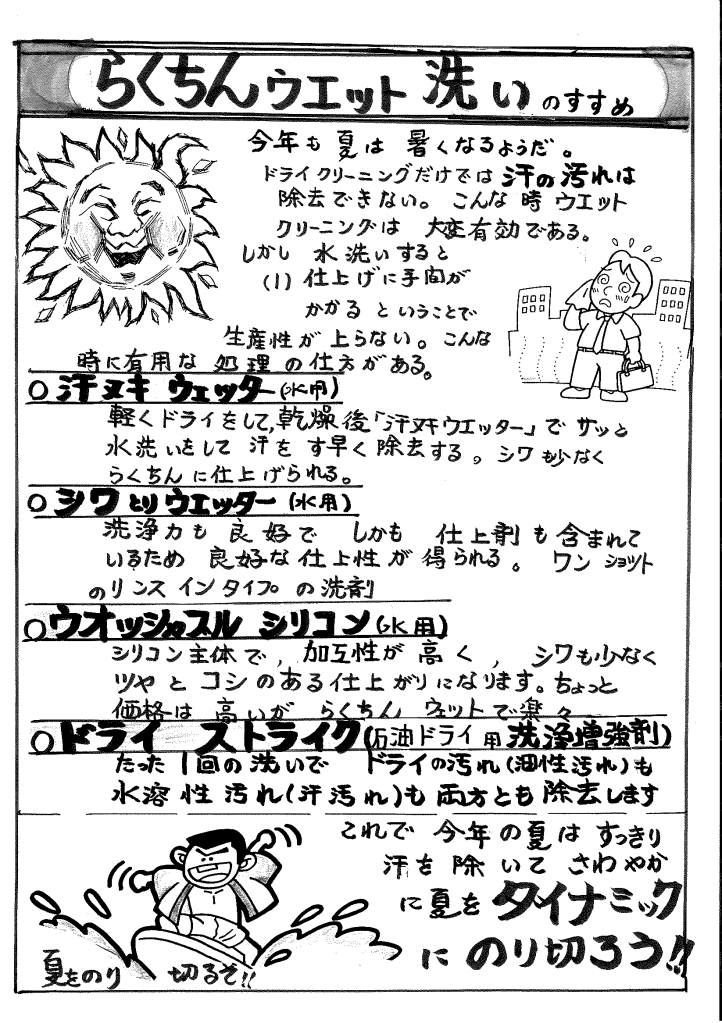 らくちんウエット洗いのすすめ
今年も夏は暑くなるようだ。
ドライクリーニングだけでは汗の汚れは
除去できない。こんな時ウエット
クリーニングは大変有効である。
しかし水洗いすると
(1)仕上げに手間が
かかるということで
生産性が上らない。こんな
時に有用な処理の仕方がある。
○汗ヌキウェッター(水用)
軽くドライをして,乾燥後「汗ヌキウエッター」でサッと
水洗いをして汗をす早く除去する。シワも少なく
らくちんに仕上げられる。
○シワとりウエッター(水用)
洗浄力も良好でしかも仕上剤も含まれて
いるため良好な仕上性が得られる。ワンショット
のリンスインタイプの洗剤
○ウオッシャブルシリコン(水用)
シリコン主体で,加互性が高く,シワも少なく
ツヤとコシのある仕上がりになります。ちょっと
価格は高いがらくちんウェットで楽々
○ドライストライク(石油ドライ用洗浄増強剤)
たった1回の洗いでドライの汚れ(油性汚れ)も
水溶性汚れ(汗汚れ)も両方とも除去します
これで今年の夏はすっきり
汗を除いてさわやか
に夏をダイナミック
にのり切ろう!!
夏をのり切るぞ!!